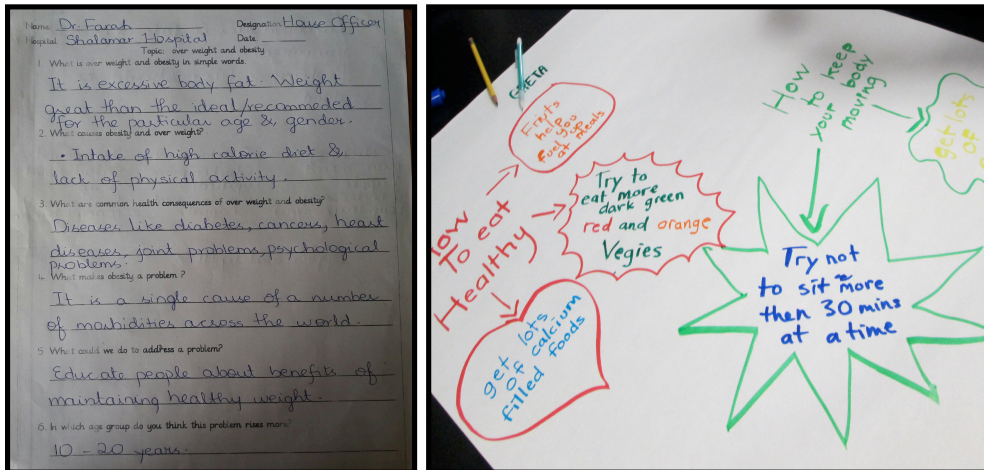 Name Dr. Farah Designation House Officer
Hospital Shalamar Hospital Date
Topic: over weight and obesity
1. What is over weight and obesity in simple words.
It is excessive body fat. Weight
great than the ideal/recommeded
for the particular age & gender.
2. What causes obesity and over weight?
• Intake of high calorie diet &
lack of physical activity.
3. What are common health consequences of over weight and obesity?
Diseases like diabetes, cancers, heart
diseases, joint problems, psychological
problems.
4. What makes obesity a problem?
It is a single cause of a number
of morbidities across the world.
5. What could we do to address a problem?
Educate people about benefits of
maintaining healthy weight.
6. In which age group do you think this problem rises more?
10 - 20 years.
GRETA
How
To eat
Healthy
Fruits
help
fuel you
up
at meals
Try to
eat more
dark green
red and orange
Vegies
get lots
of calcium
filled foods
How
to keep
your body
moving
get lots
of
Try not
to sit more
then 30 mins
at a time